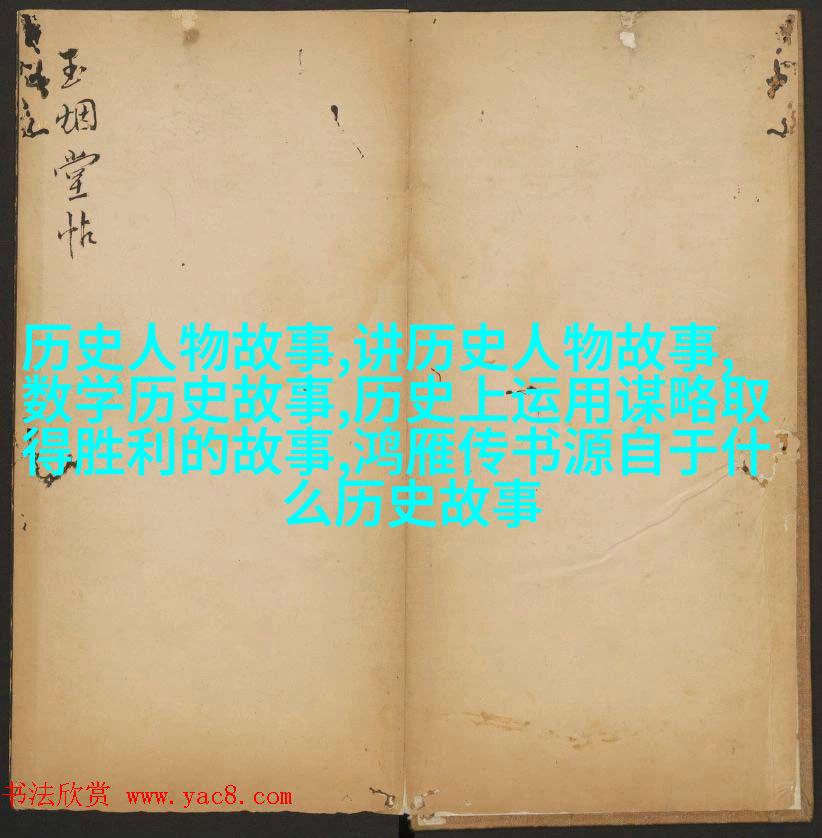 玉烟堂帖
历史人物故事,讲历史人物故事,
数学历史故事,历史上运用谋略取
得胜利的故事,鸿雁传书源自于什
么历史故事
书法欣赏 www.yac8.com